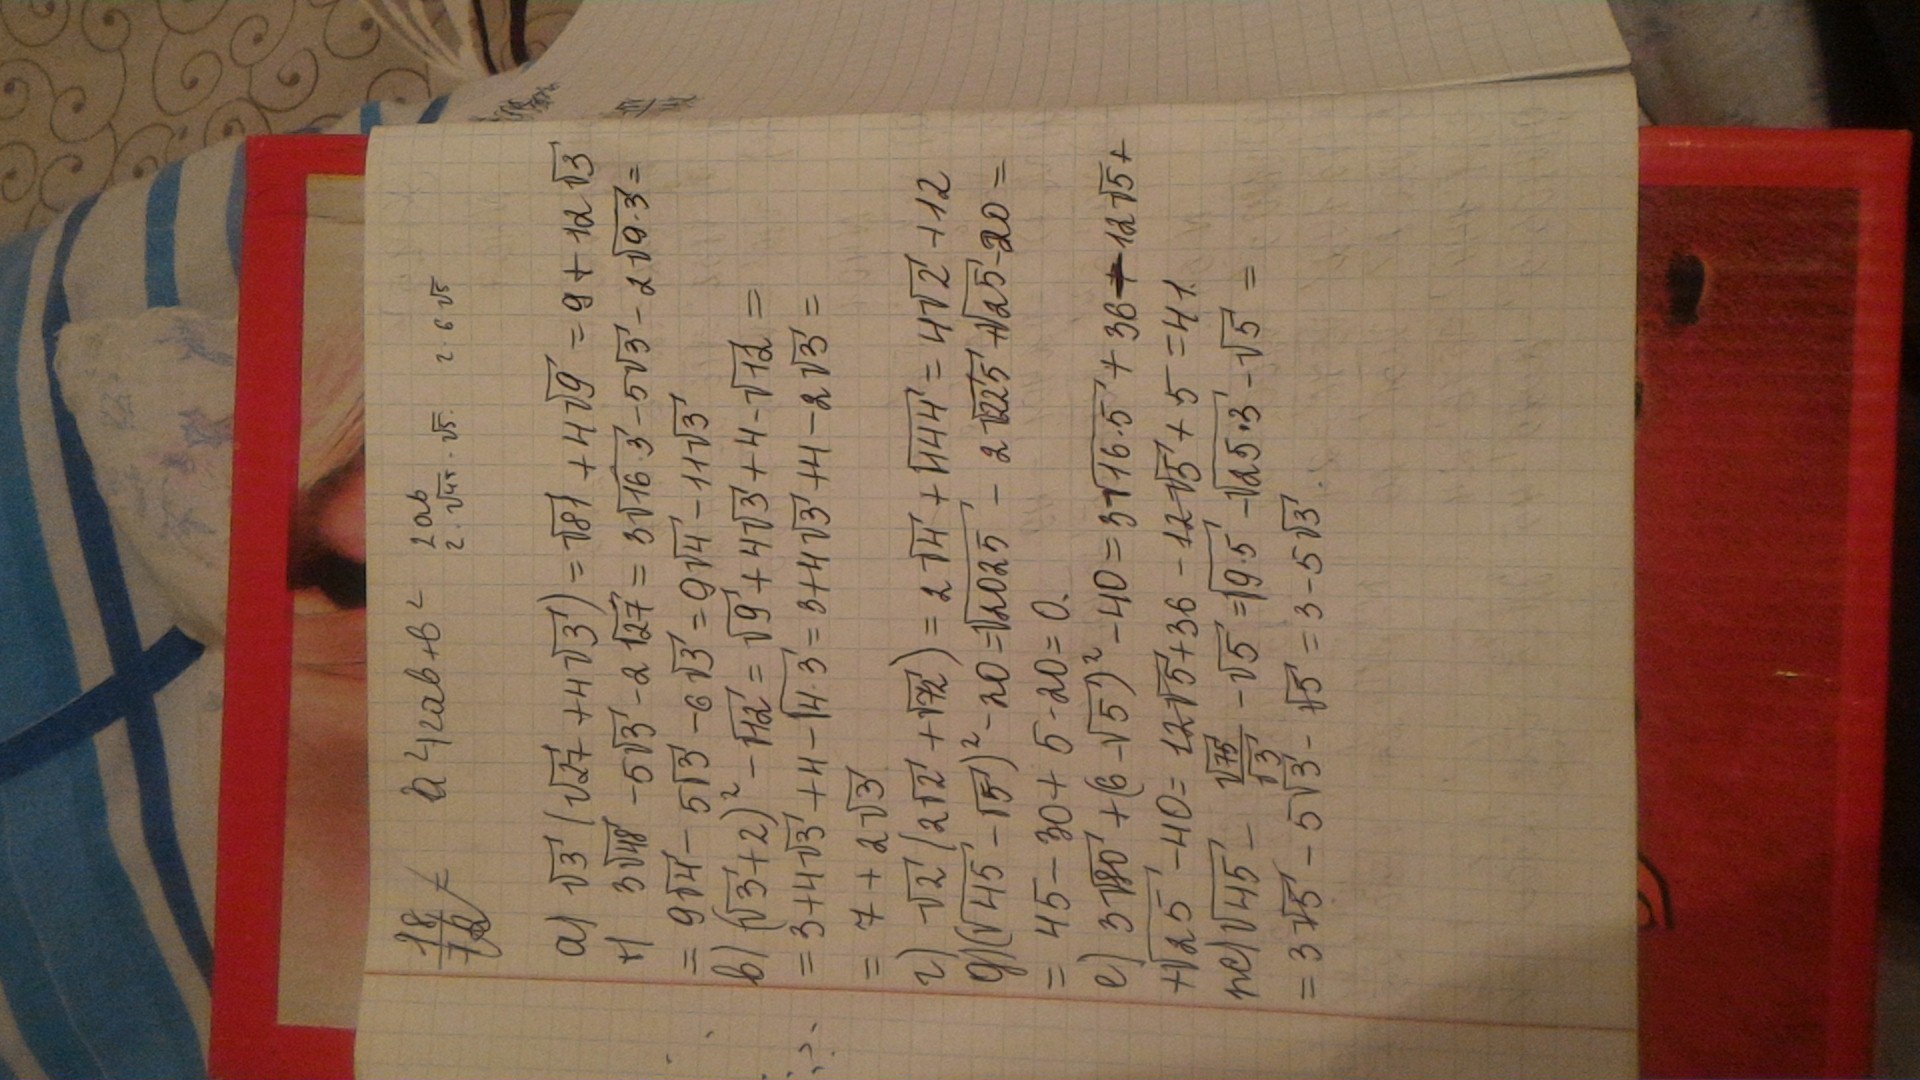 a² + 2ab + b² 2ab
2·√45·√5 2·6√5
а) √3 (√27 + 4√3) = √81 + 4√9 = 9 + 12√3
3√48 - 5√3 - 2√27 = 3√16·3 - 5√3 - 2√9·3 =
= 9√4 - 5√3 - 6√3 = 9√4 - 11√3
в) (√3 + 2)² - √12 = √9 + 4√3 + 4 - √12 =
= 3 + 4√3 + 4 - √4·3 = 3 + 4√3 + 4 - 2√3 =
= 7 + 2√3
г) √2 (2√2 + √72) = 2√4 + √144 = 4√2 + 12
д) (√45 - √5)² - 20 = √2025 - 2√225 + √25 - 20 =
= 45 - 30 + 5 - 20 = 0.
е) 3√80 + (6 - √5)² - 40 = 3√16·5 + 36 - 12√5 +
+ √25 - 40 = 12√5 + 36 - 12√5 + 5 = 41.
ж) √45 - √75/√3 - √5 = √9·5 - √25·3 - √5 =
= 3√5 - 5√3 - √5 = 3 - 5√3.